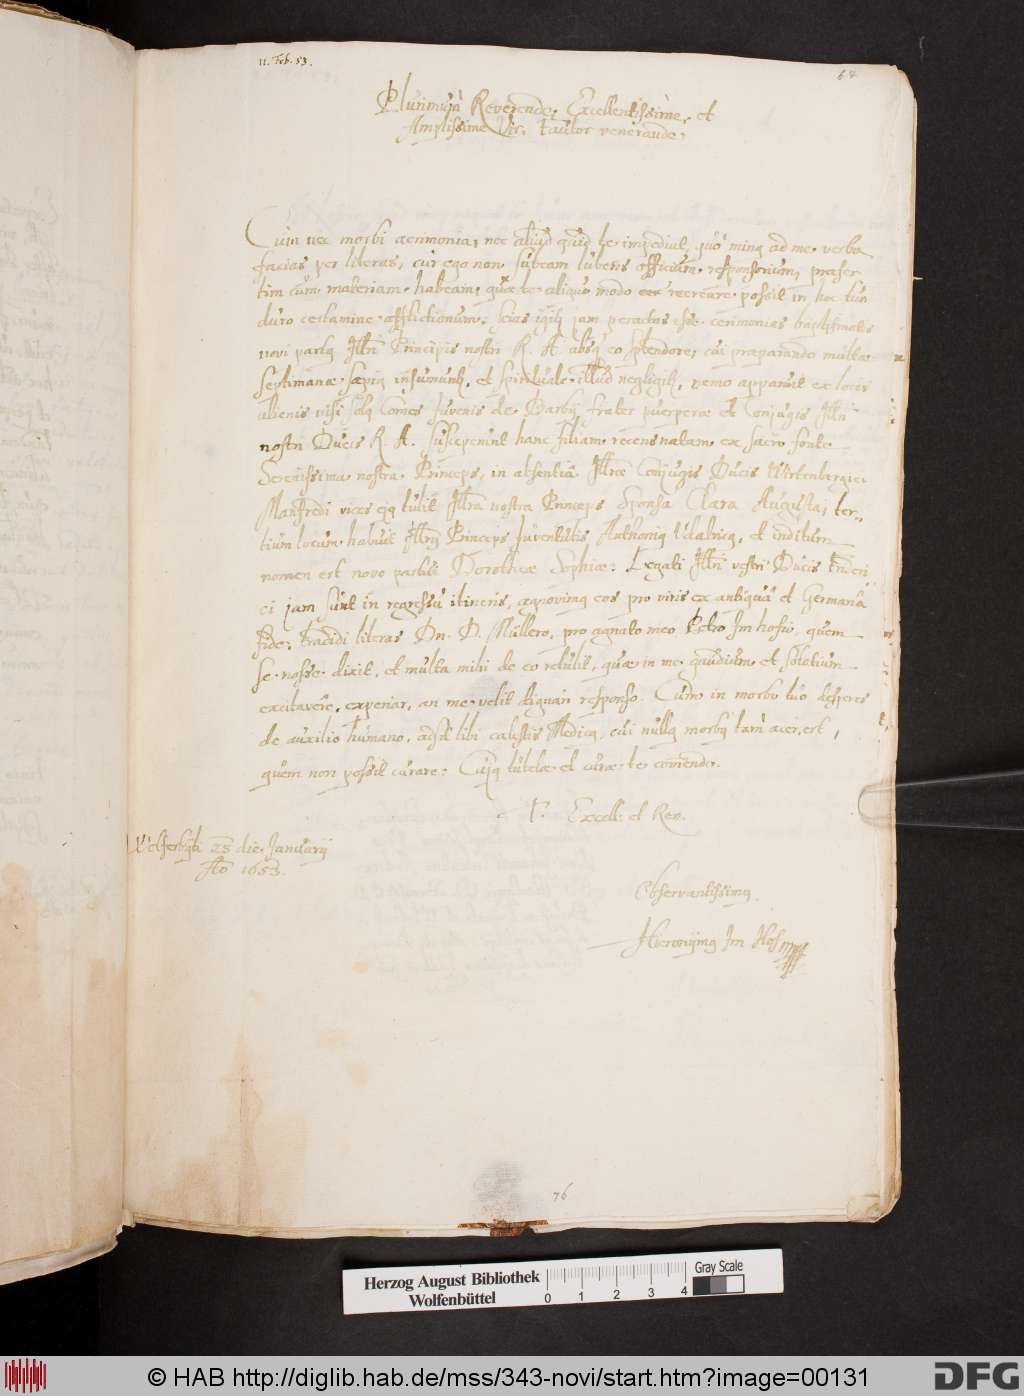 11. Feb. 53.
64
Plurimum Reverende, Excellentissime, et
Amplissime Vir, Fautor venerande.
Cum nec morbi acrimonia, nec aliud quid te impediat, quo minq ad me verba
facias per literas, cur ego non subeam lubens officium responsorium, praeser
tim cum materiam habeam, quae te aliquo modo recreare possit in hoc tuo
duro certamine afflictionum. Scias jam peractas esse cerimonias baptismatis
novi partq Illmi Principis nostri R. A. absq eo splendore, cui praeparando multae
septimanae saepiq insumunt, et spirituale illud negligit, nemo apparuit ex locis
alienis nisi solq Comes Juvenis de Barby frater puerperae et Conjugis Illmi
nostri Ducis R. A. susceperunt hanc filiam recens natam ex sacro fonte
Serenissima nostra Princeps, in absentia Illmae Conjugis Ducis Wirtenbergici
Manfredi vices ejq tulit Illma nostra Princeps Sponsa Clara Augusta, ter-
tium locum habuit Illmq Princeps Juventutis Anthoniq Udalricq, et inditum
nomen est novo partui Dorotheae Sophiae. Legati Illmi vestri Ducis
jam sunt in regressu itineris, agnovimq eos pro viris ex antiqua et Germana
fide. Tradidi literas Dn. D. Müllero, pro agnato meo Petro Im hofio, quem
se nosse dixit, et multa mihi de eo retulit, quae in me gaudium et solatium
excitavere, experiar, an me velit dignari responso. Cum in morbo tuo desperes
de auxilio humano, adsit tibi caelestis Medicq, cui nullq morbq tam acer est,
quem non possit curare. Cujq tutelae et curae te comendo.
T. Excell. et Rev.
Welferbyti 28 die Januarij
Ao 1653.
Observantissimq
Hieronymq Im Hof
76
Herzog August Bibliothek
Wolfenbüttel
0 1 2 3 4
Gray Scale
© HAB http://diglib.hab.de/mss/343-novi/start.htm?image=00131
DFG